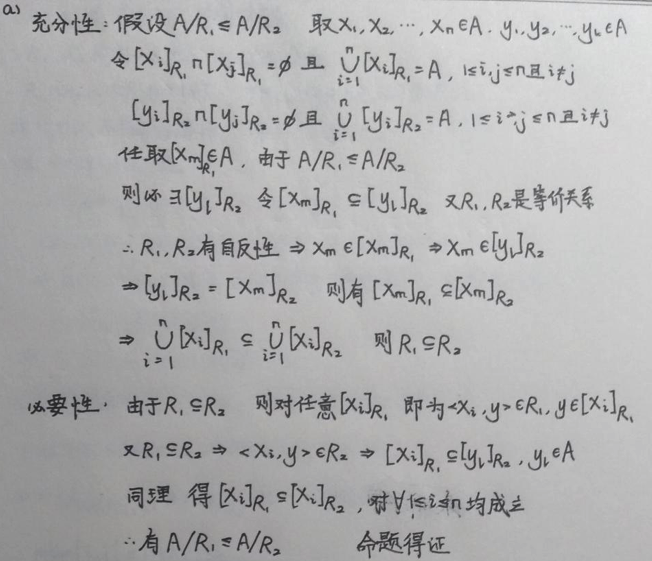 a)
充分性：假设A/R₁≤A/R₂ 取x₁,x₂,…,xₙ∈A. y₁,y₂,…,yₖ∈A
令[xᵢ]R₁∩[xⱼ]R₁=∅ 且 ⋃ⁿᵢ₌₁[xᵢ]R₁=A, 1≤i,j≤n且i≠j
[yᵢ]R₂∩[yⱼ]R₂=∅ 且 ⋃ⁿᵢ₌₁[yᵢ]R₂=A, 1≤i,j≤n且i≠j
任取[xₘ]R₁∈A, 由于A/R₁≤A/R₂
则必∃[yₗ]R₂ 令[xₘ]R₁⊆[yₗ]R₂ 又R₁,R₂是等价关系
∴R₁,R₂有自反性⇒xₘ∈[xₘ]R₁⇒xₘ∈[yₗ]R₂
⇒[yₗ]R₂=[xₘ]R₂ 则有[xₘ]R₁⊆[xₘ]R₂
⇒⋃ⁿᵢ₌₁[xᵢ]R₁⊆⋃ⁿᵢ₌₁[xᵢ]R₂ 则R₁⊆R₂
必要性. 由于R₁⊆R₂ 则对任意[xᵢ]R₁ 即为<xᵢ,y>∈R₁,y∈[xᵢ]R₁
又R₁⊆R₂⇒<xᵢ,y>∈R₂⇒[xᵢ]R₁⊆[yₗ]R₂,yₗ∈A
同理 得[xᵢ]R₁⊆[xᵢ]R₂,对∀1≤i≤n均成立
∴有A/R₁≤A/R₂ 命题得证